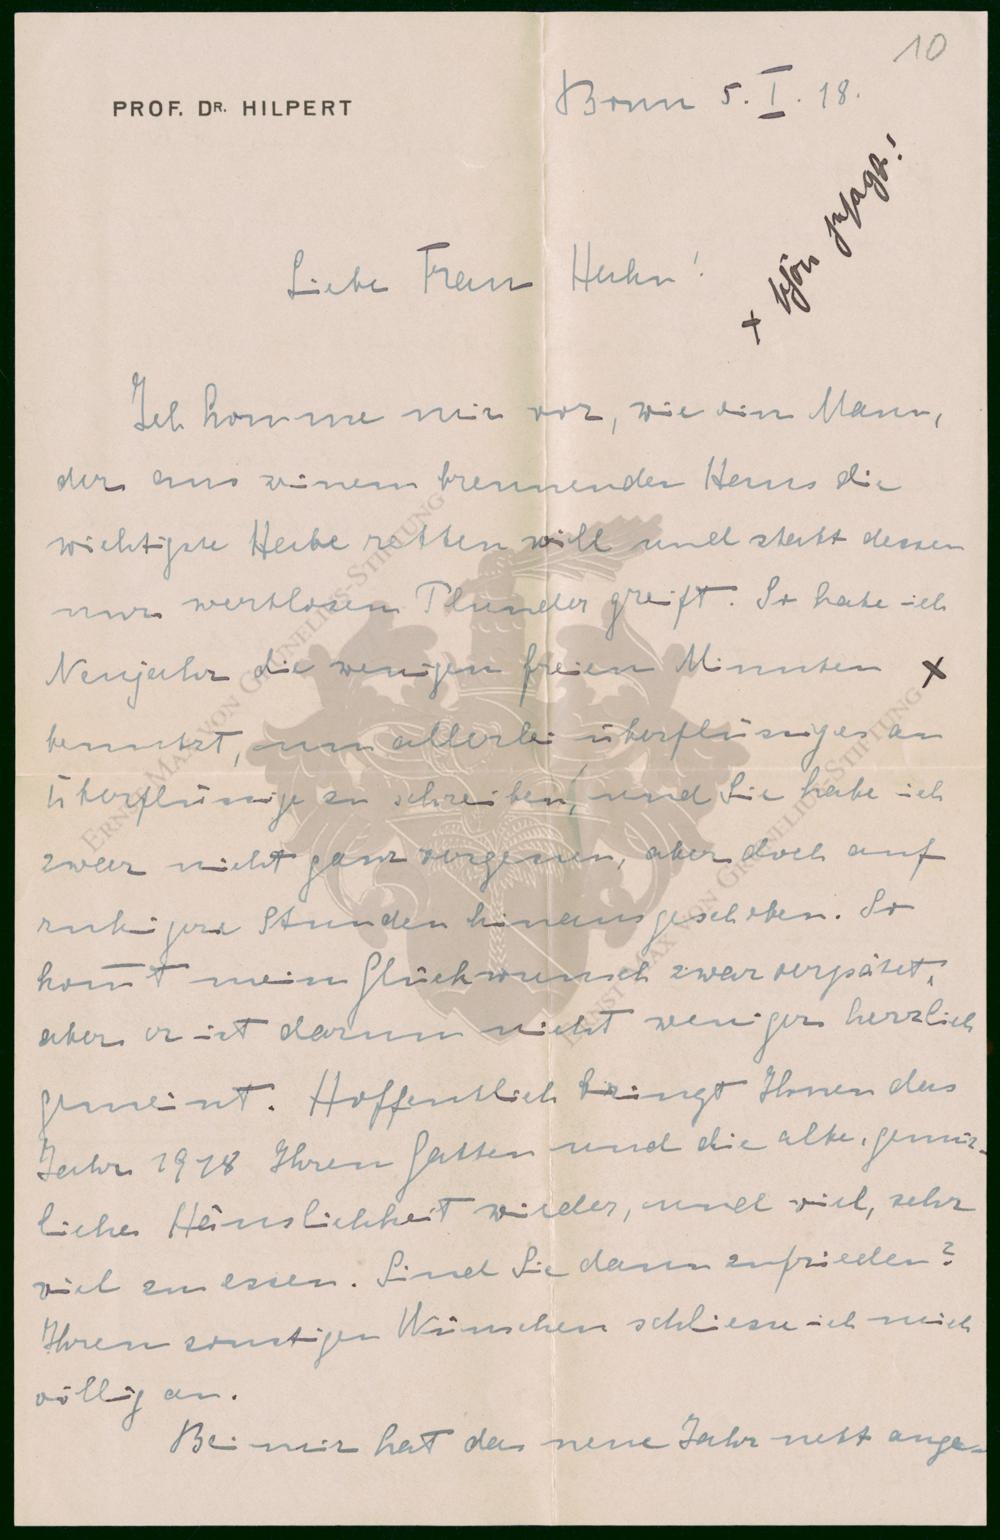 10
PROF. DR. HILPERT
Bonn 5. I. 18.
+ schön gesagt!
Liebe Frau Hahn!
Ich komme mir vor, wie ein Mann,
der aus seinem brennenden Haus die
wichtigste Habe retten will und statt dessen
nur wertlosen Plunder greift. So habe ich
Neujahr die wenigen freien Minuten +
benutzt, um allerlei überflüssiges an
Überflüssige zu schreiben, und Sie habe ich
zwar nicht ganz vergessen, aber doch auf
ruhigere Stunden hinausgeschoben. So
kom̅t mein Glückwunsch zwar verspätet,
aber er ist darum nicht weniger herzlich
gemeint. Hoffentlich bringt Ihnen das
Jahr 1918 Ihren Gatten und die alte, gemüt-
liche Häuslichkeit wieder, und viel, sehr
viel zu essen. Sind Sie dann zufrieden?
Ihren sonstigen Wünschen schliesse ich mich
völlig an.
Bei mir hat das neue Jahr nett ange-
ERNST MAX VON GRUNELIUS-STIFTUNG
ERNST MAX VON GRUNELIUS-STIFTUNG